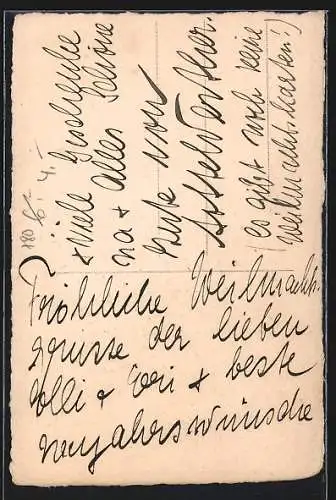 Fröhliche Weihnachts-
grüsse der lieben
Olli + Evi + beste
Neujahrswünsche
+ viele Geschenke
na + alles Schöne
Gute von
(es gibt noch keine
Weihnachtskarten!)
180
6,-
4.-